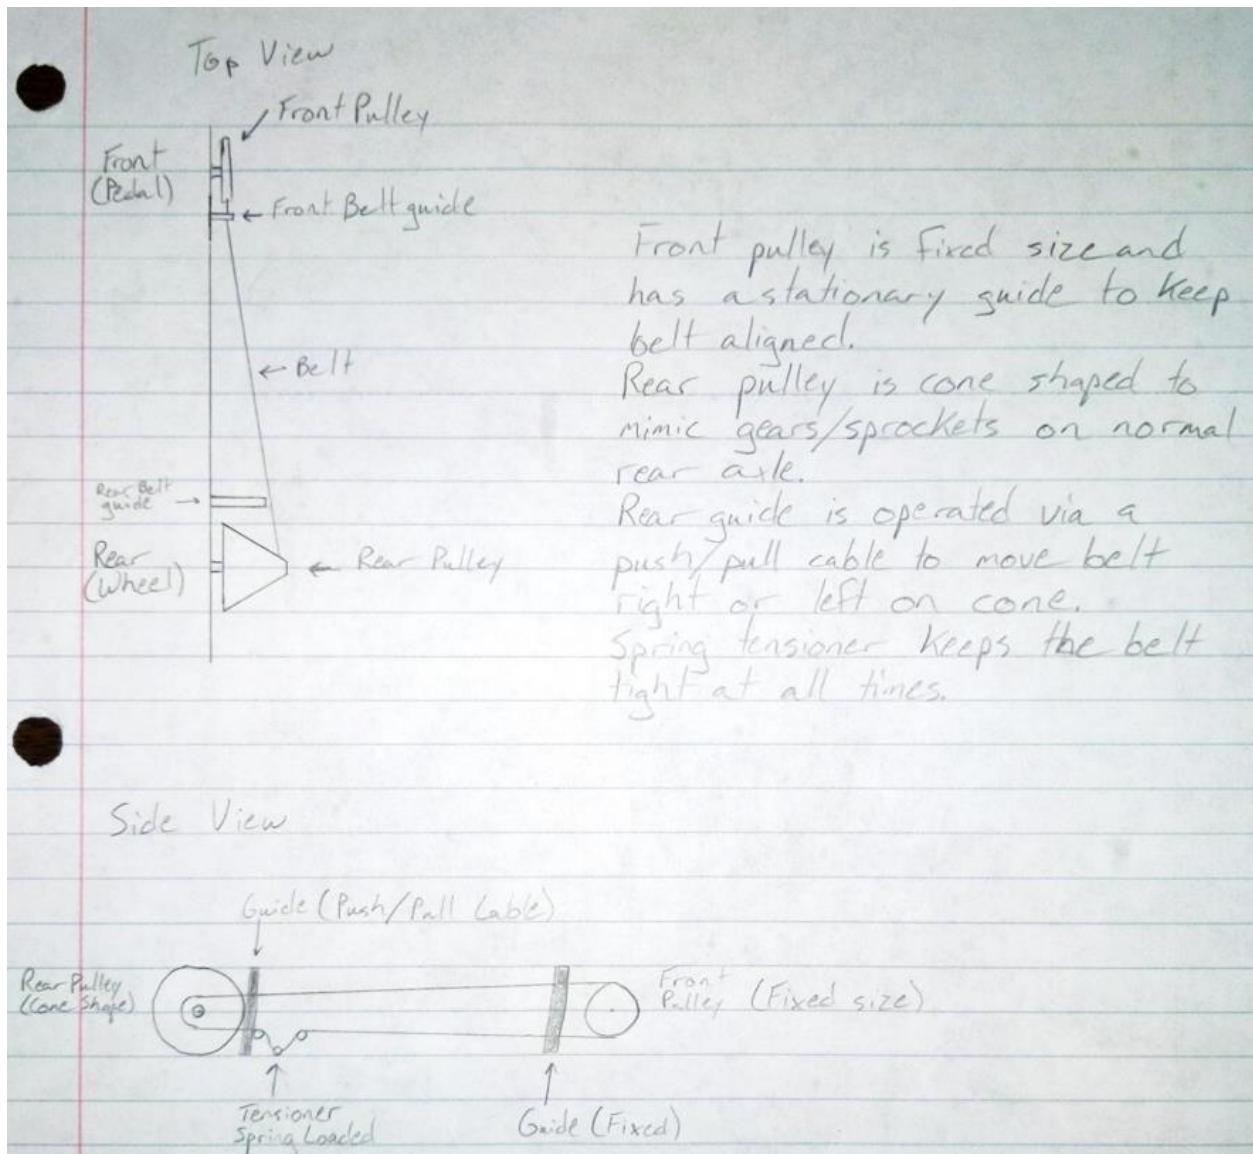 Top View
Front Pulley
Front
(Pedal)
← Front Belt guide
← Belt
Rear Belt
guide →
Rear
(Wheel)
← Rear Pulley
Front pulley is fixed size and
has a stationary guide to keep
belt aligned.
Rear pulley is cone shaped to
mimic gears/sprockets on normal
rear axle.
Rear guide is operated via a
push/pull cable to move belt
right or left on cone.
Spring tensioner keeps the belt
tight at all times.
Side View
Guide (Push/Pull Cable)
Rear Pulley
(Cone Shape)
Front
Pulley (Fixed size)
Tensioner
Spring Loaded
Guide (Fixed)